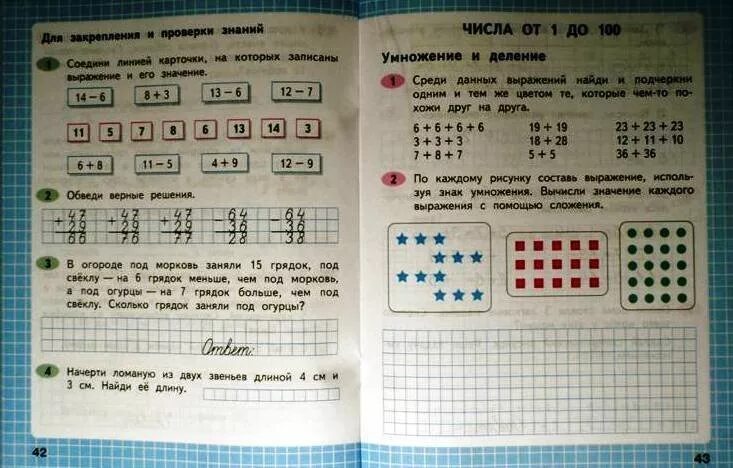 Для закрепления и проверки знаний
1 Соедини линией карточки, на которых записаны
выражение и его значение.
14 − 6 8 + 3 13 − 6 12 − 7
11 5 7 8 6 13 14 3
6 + 8 11 − 5 4 + 9 12 − 9
2 Обведи верные решения.
+47 +47 +47 −64 −64
29 29 29 36 36
66 76 77 28 38
3 В огороде под морковь заняли 15 грядок, под
свёклу — на 6 грядок меньше, чем под морковь,
а под огурцы — на 7 грядок больше, чем под
свёклу. Сколько грядок заняли под огурцы?
Ответ:
4 Начерти ломаную из двух звеньев длиной 4 см и
3 см. Найди её длину.
42
ЧИСЛА ОТ 1 ДО 100
Умножение и деление
1 Среди данных выражений найди и подчеркни
одним и тем же цветом те, которые чем-то по-
хожи друг на друга.
6 + 6 + 6 + 6 19 + 19 23 + 23 + 23
3 + 3 + 3 18 + 28 12 + 11 + 10
7 + 8 + 7 5 + 5 36 + 36
2 По каждому рисунку составь выражение, исполь-
зуя знак умножения. Вычисли значение каждого
выражения с помощью сложения.
43